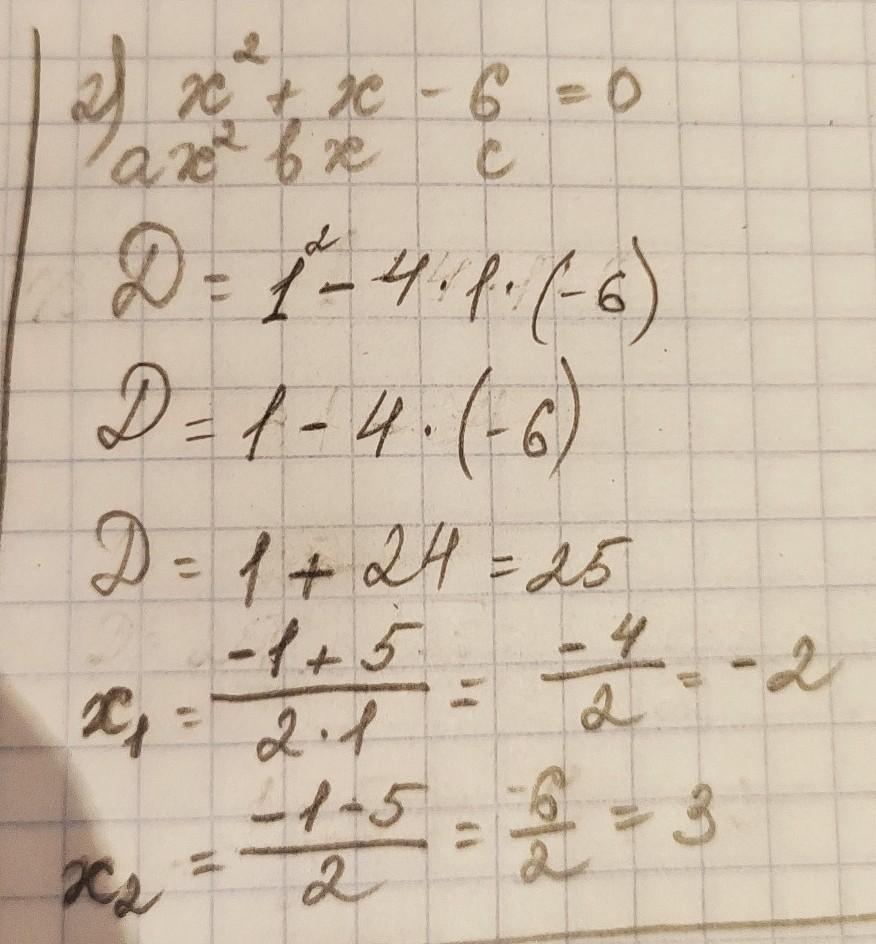 2) x² + x - 6 = 0
ax² bx c
D = 1² - 4 · 1 · (-6)
D = 1 - 4 · (-6)
D = 1 + 24 = 25
x₁ = (-1 + 5)/(2 · 1) = (-4)/2 = -2
x₂ = (-1 - 5)/2 = (-6)/2 = 3